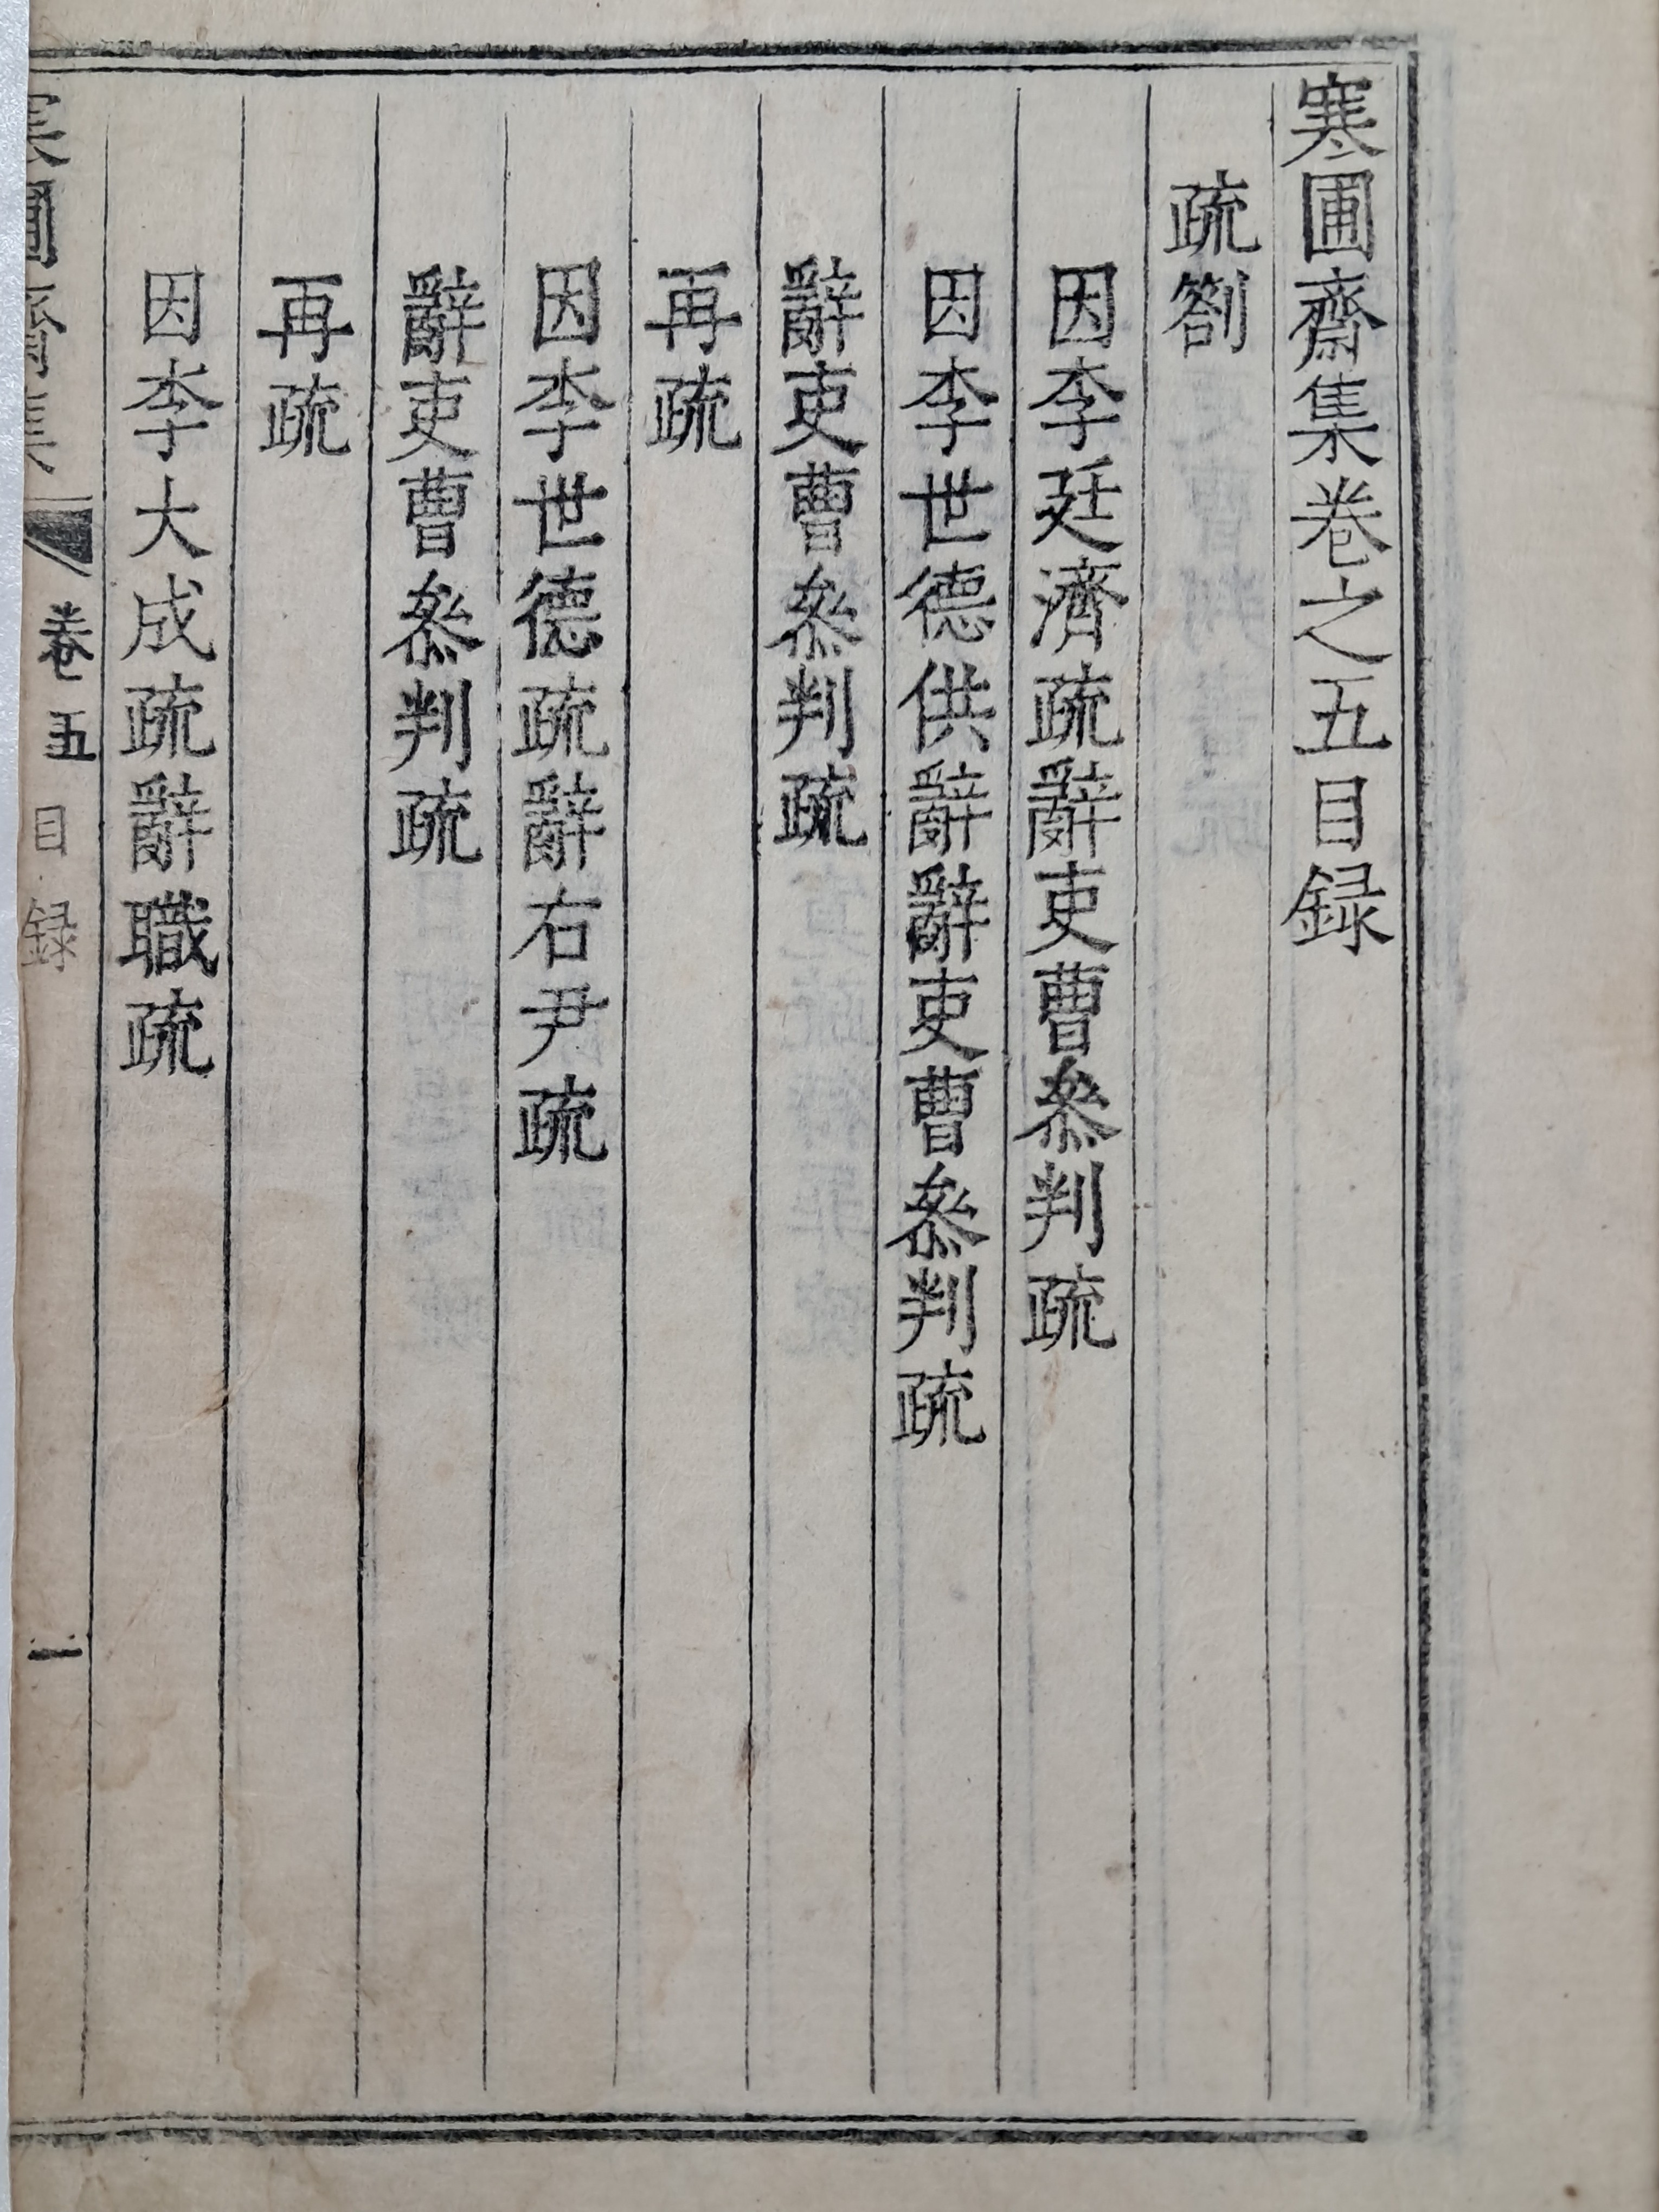 寒圃齋集卷之五目録
疏劄
因李廷濟疏辭吏曹叅判疏
因李世德供辭辭吏曹叅判疏
辭吏曹叅判疏
再疏
因李世德疏辭右尹疏
辭吏曹叅判疏
再疏
因李大成疏辭職疏
寒圃齋集 卷五 目録 一